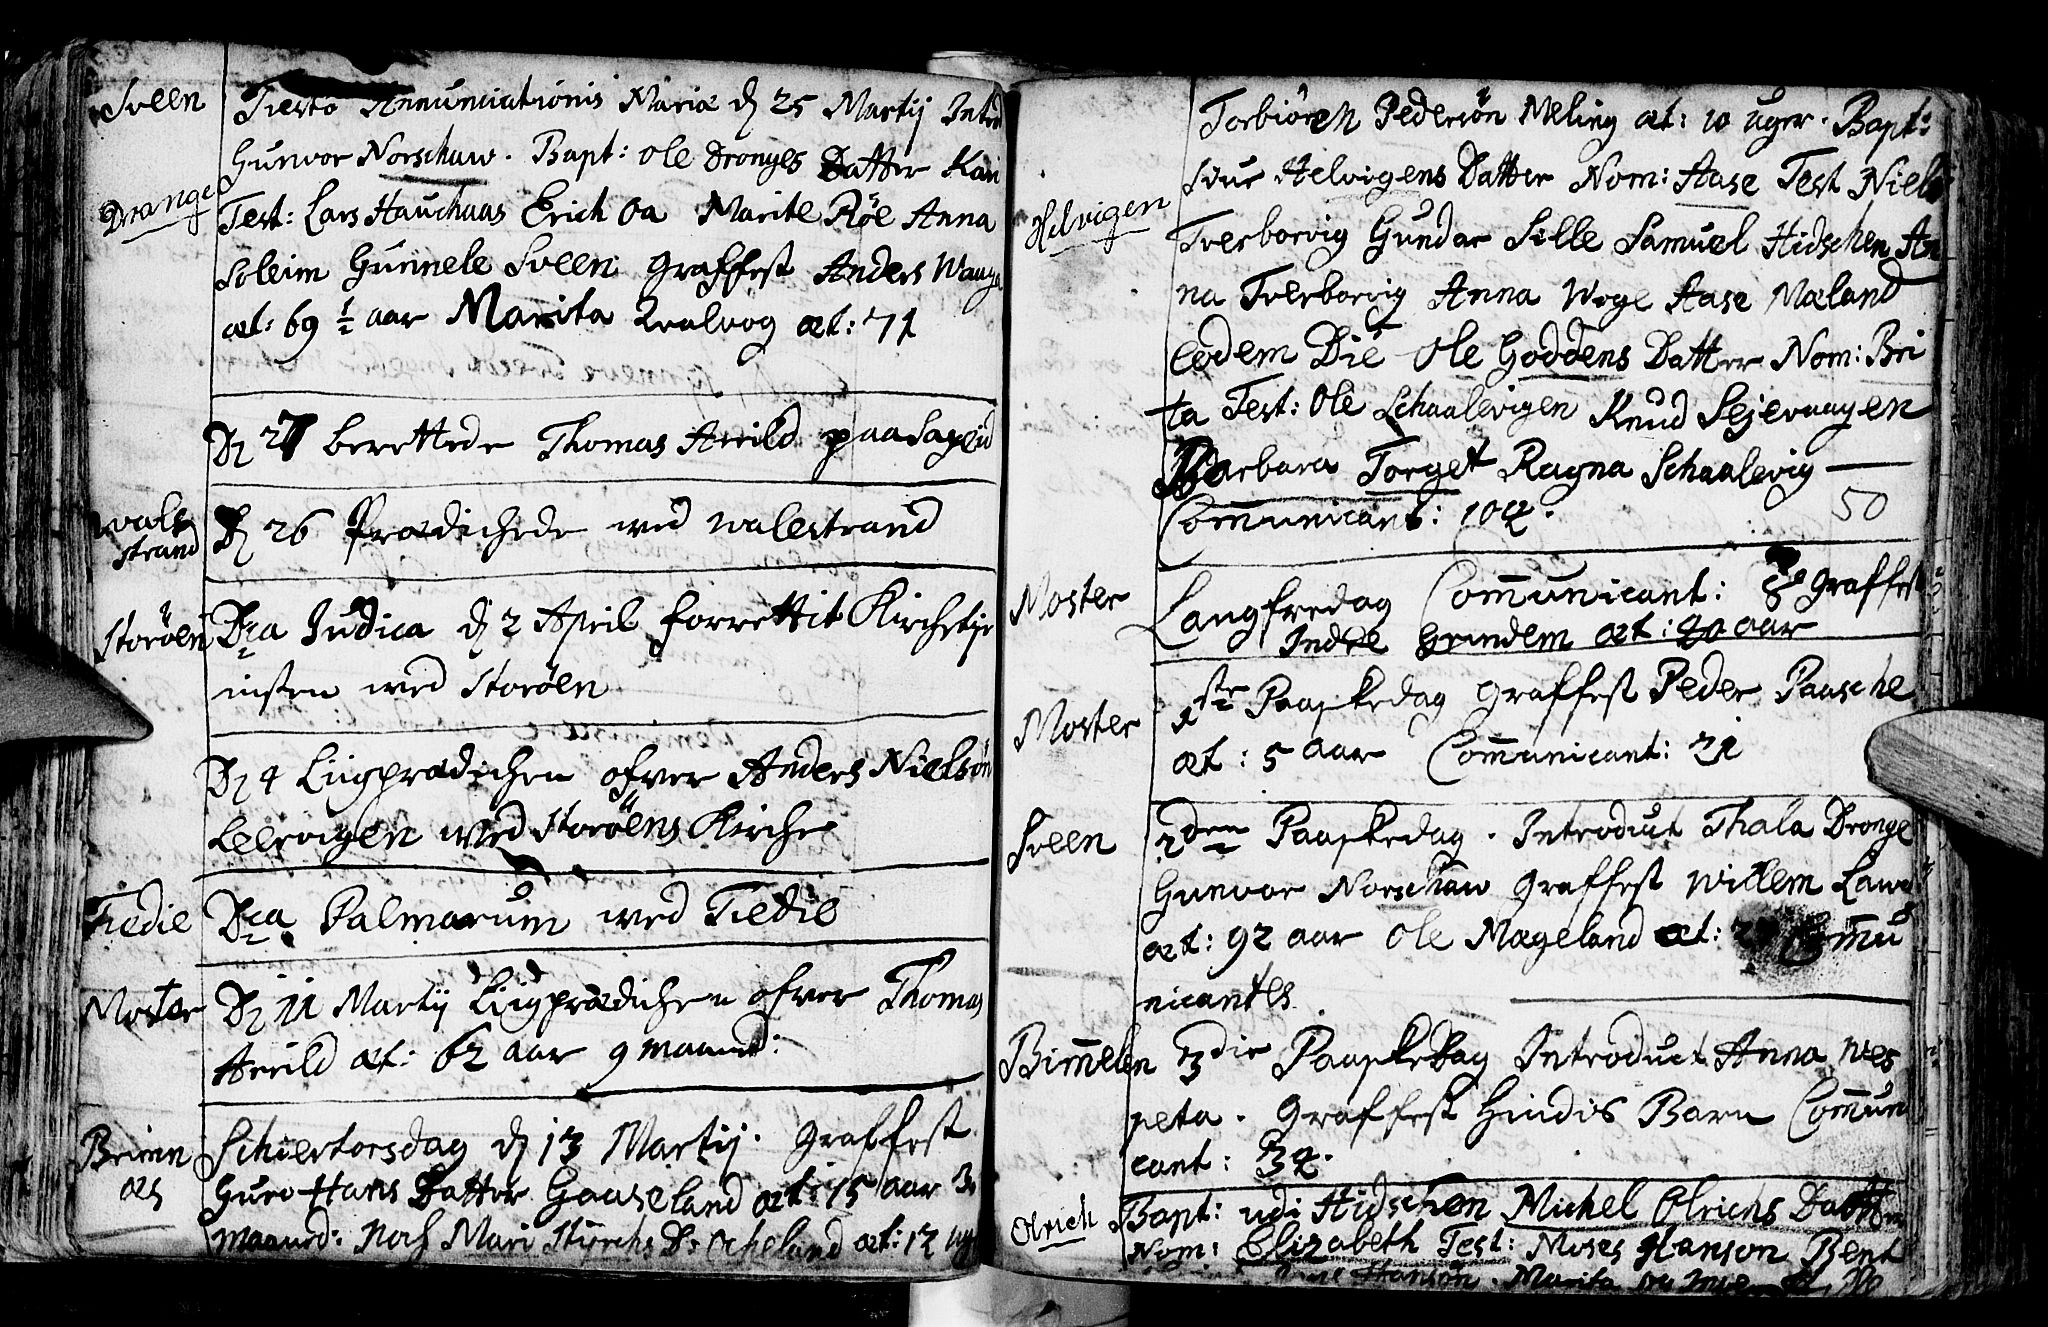 Sveen
Festo Annunciationis Mariæ d 25 Martij Introd
Gunvor Norschuw. Bapt: Ole Dronges Datter Kari
Drange
Test: Lars Hauchaas Erich Oa Marite Röe Anna
Soleim Gunnele Sveen graffest Anders Wange
æt: 69 ½ aar Marita Qvalvog æt: 71
D 27 berettede Thomas Arild paa Sageid
Wale
strand
D 26 Prædichede wed Walestrand
Storöen
Dca Judica d 2 April forrettit Kirchetje
nisten wed Storöen
D 4 Liigprædichen ofver Anders Nielsön
Leervigen wed Storöens Kirche
Fiedie
Dca Palmarum wed Fiedie
Moster
D 11 Martij Liigprædichen ofver Thomas
Arild æt: 62 aar 9 maaned:
Bremn
æs
Schiertorsdag d 13 Martij. graffest
Guro Hans Datter Gaaseland æt: 15 aar 3
maaned: Noch Mari Styrchs D: Ocheland æt: 12
Torbiören Pedersön Meling æt: 10 uger. Bapt:
Helvigen
Siur Helvigens Datter Nom: Aase Test Niels
Tverborvig Gundar Sille Samuel Hidschen An
na Tverborvig Anna Woge Aase Mæland
Eodem Die Ole Goddens Datter Nom: Bri
ta Test: Ole Schaalevigen Knud Sejervaagen
Barbara Torget Ragna Schaalevig
Communicant: 102. 50
Moster
Langfredag Communicant: 8 graffest
Indre Grindem æt: 20 aar
Moster
1ste Paaskedag graffest Peder Paasche
æt: 5 aar Communicant: 21
Sveen
2den Paaskedag. Introduct Thala Dronge
Gunvor Norschuw graffest Willem
æt: 92 aar Ole Mægeland æt: Commu
nicantes
Bim̄elen
3die Paaskedag Introduct Anna Wes
peta. Graffest Hindis Barn Commun
cant: 32.
Olrich
Bapt: udi Hidschen Michel Olrichs Datter
Nom: Elizabeth Test: Moses Hanson Bent
Hansön. Marita